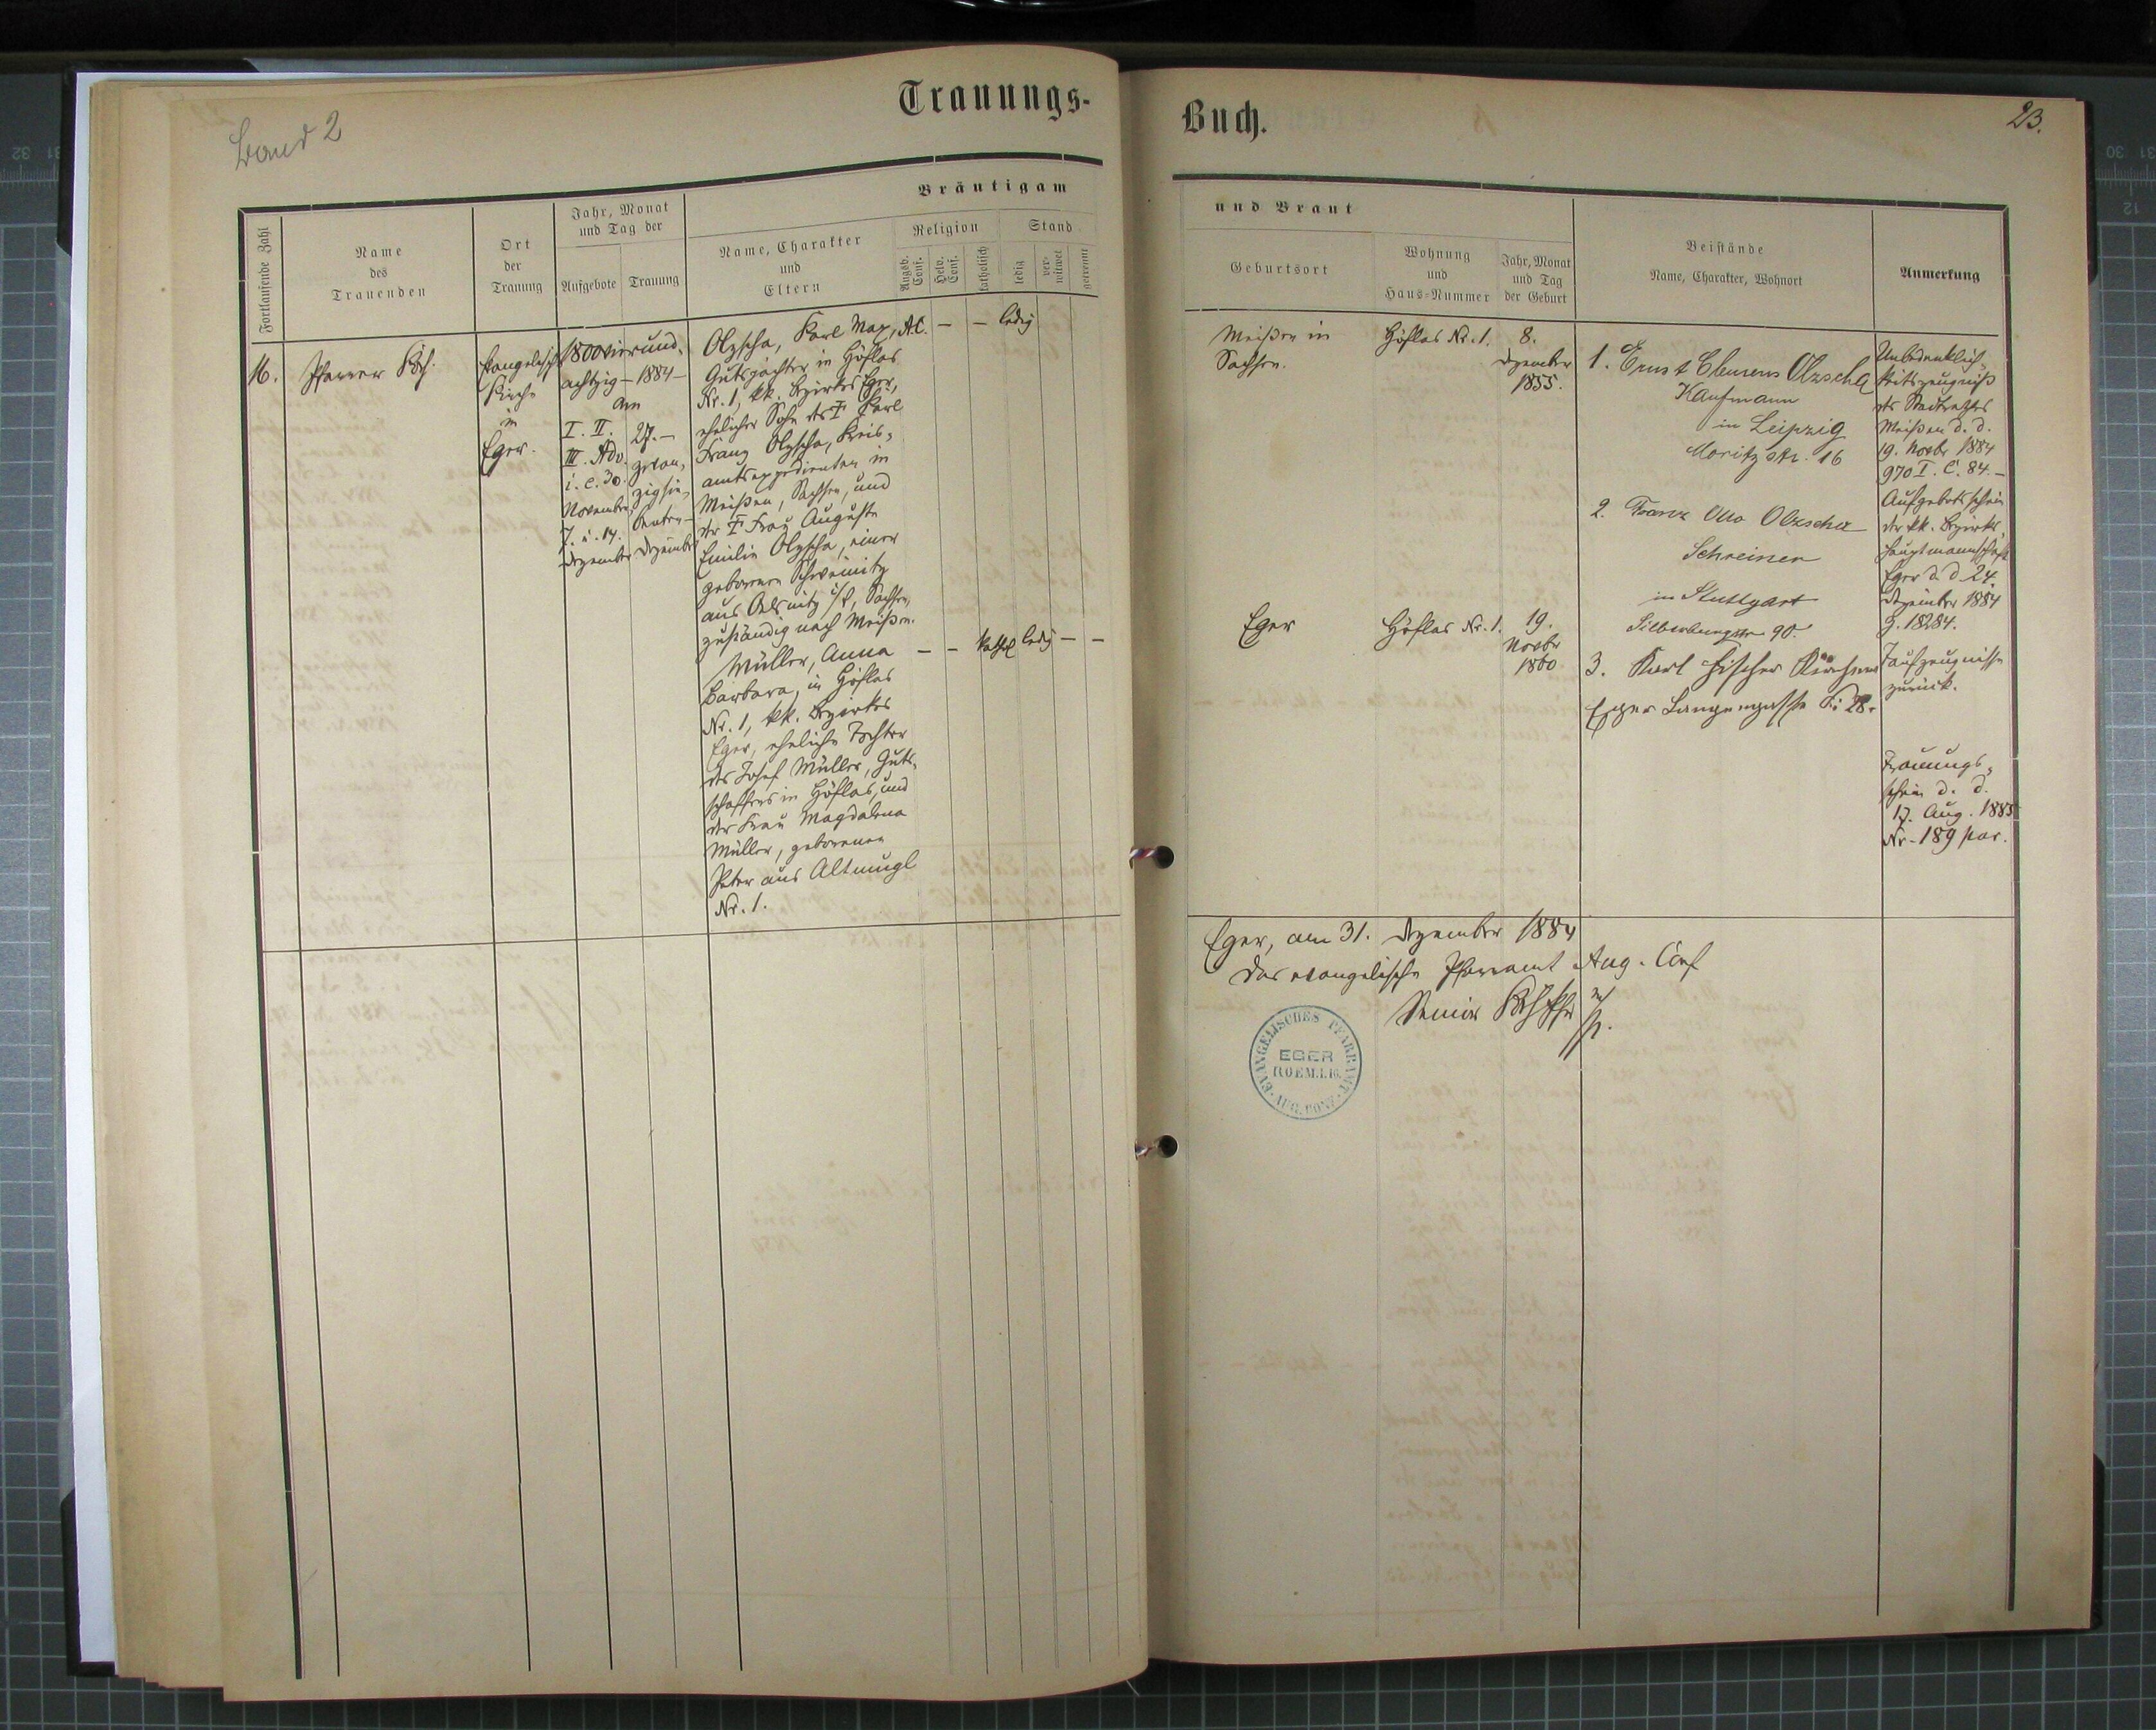 Band 2
Trauungs-
Buch.
23.
Bräutigam
und Braut
Fortlaufende Zahl
Name
des
Trauenden
Ort
der
Trauung
Jahr, Monat
und Tag der
Aufgebote
Trauung
Name, Charakter
und
Eltern
Religion
Augsb.
Conf.
Helv.
Conf.
katholisch
Stand
ledig
ver-
witwet
getrennt
Geburtsort
Wohnung
und
Haus-Nummer
Jahr, Monat
und Tag
der Geburt
Beistände
Name, Charakter, Wohnort
Anmerkung
16.
Pfarrer Koch.
Evangelische
Kirche
in
Eger.
1800vierund-
achtzig - 1884 -
am
I. II.
III. Adv.
i. e. 30.
November
7. u. 14.
Dezember
27. -
zwan-
zigsie-
benten -
Dezember
Olzscha, Karl Max,
Gutspächter in Höflas
Nr. 1, kk. Bezirkes Eger,
ehelicher Sohn des † Karl
Franz Olzscha, Kreis-
amtsexpedienten in
Meißen, Sachsen, und
der † Frau Auguste
Emilie Olzscha, einer
geborenen Schweinitz
aus Oelsnitz i/V, Sachsen,
zuständig nach Meißen.
A.C. - - ledig
Müller, Anna
Barbara, in Höflas
Nr. 1, kk. Bezirkes
Eger, eheliche Tochter
des Josef Müller, Guts-
schaffers in Höflas, und
der Frau Magdalena
Müller, geborenen
Peter aus Altmugl
Nr. 1.
- - kathol ledig - -
Meißen in
Sachsen.
Höflas Nr. 1.
8.
Dezember
1855.
Eger
Höflas Nr. 1.
19.
Novbr
1860
1. Ernst Clemens Olzscha
Kaufmann
in Leipzig
Moritzstr. 16
2. Franz Otto Olzscha
Schreiner
in Stuttgart
Silberburgstr 90.
3. Karl Fischer
Eger Langegasse No 28.
Unbedenklich-
keitszeugniß
des Stadtrathes
Meißen d. d.
19. Novbr 1884
970 I. C. 84. -
Aufgebotsschein
der kk. Bezirks-
hauptmannschaft
Eger d. d 24.
Dezember 1884
Z. 18284.
Taufzeugnisse
zurück.
Trauungs-
schein d. d.
17. Aug. 1885
Nr. 189 par.
Eger, am 31. Dezember 1884
Das evangelische Pfarramt Aug. Conf
Senior Koch Pfr
EVANGELISCHES PFARRAMT
EGER
BOEM. I. 16.
AUG. CONF.